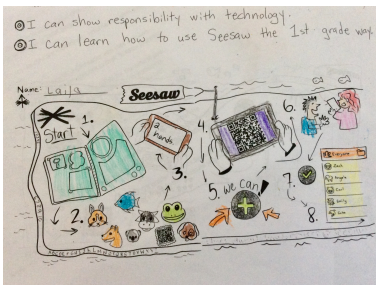 I can show responsibility with technology.
I can learn how to use Seesaw the 1st grade way.
Name: Laila
Seesaw
Start
1.
2.
hands
3.
4.
5. we can!
6.
7.
8.
Everyone
Jack
Angela
Carl
Emily